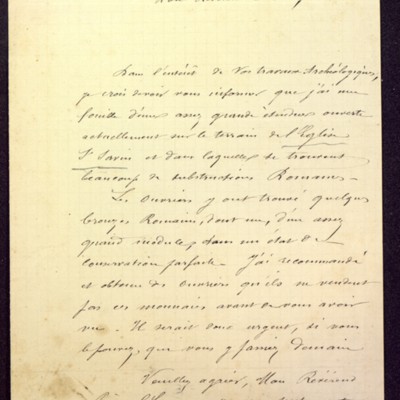 Dans l'intérêt de vos travaux Archéologiques,
je crois devoir vous informer que j'ai une
fouille d'une assez grande étendue ouverte
actuellement sur le terrain de l'Eglise
St Savin et dans laquelle se trouvent
beaucoup de substructions Romaines.
Les Ouvriers y ont trouvé quelques
bronzes Romains, dont un, d'une assez
grand module, dans un état de
conservation parfaite. J'ai recommandé
et obtenu des Ouvriers qu'ils ne vendent
pas ces monnaies avant de vous avoir
vu. Il serait donc urgent, si vous
le pouvez, que vous y passiez demain
Veuillez agréer, Mon Révérend